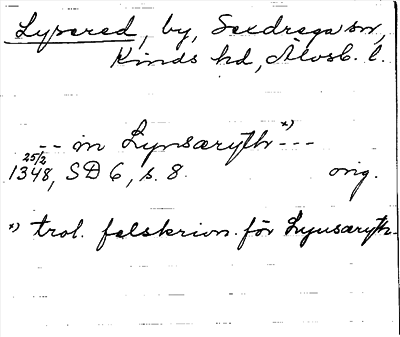 Lysered, by, Sexdrega sn,
Kinds hd, Älvsb. l.
-- in Lynsæryth *) ---
25/2
1348, SD 6, s. 8. orig.
*) trol. felskrivn. för Lyusæryth.